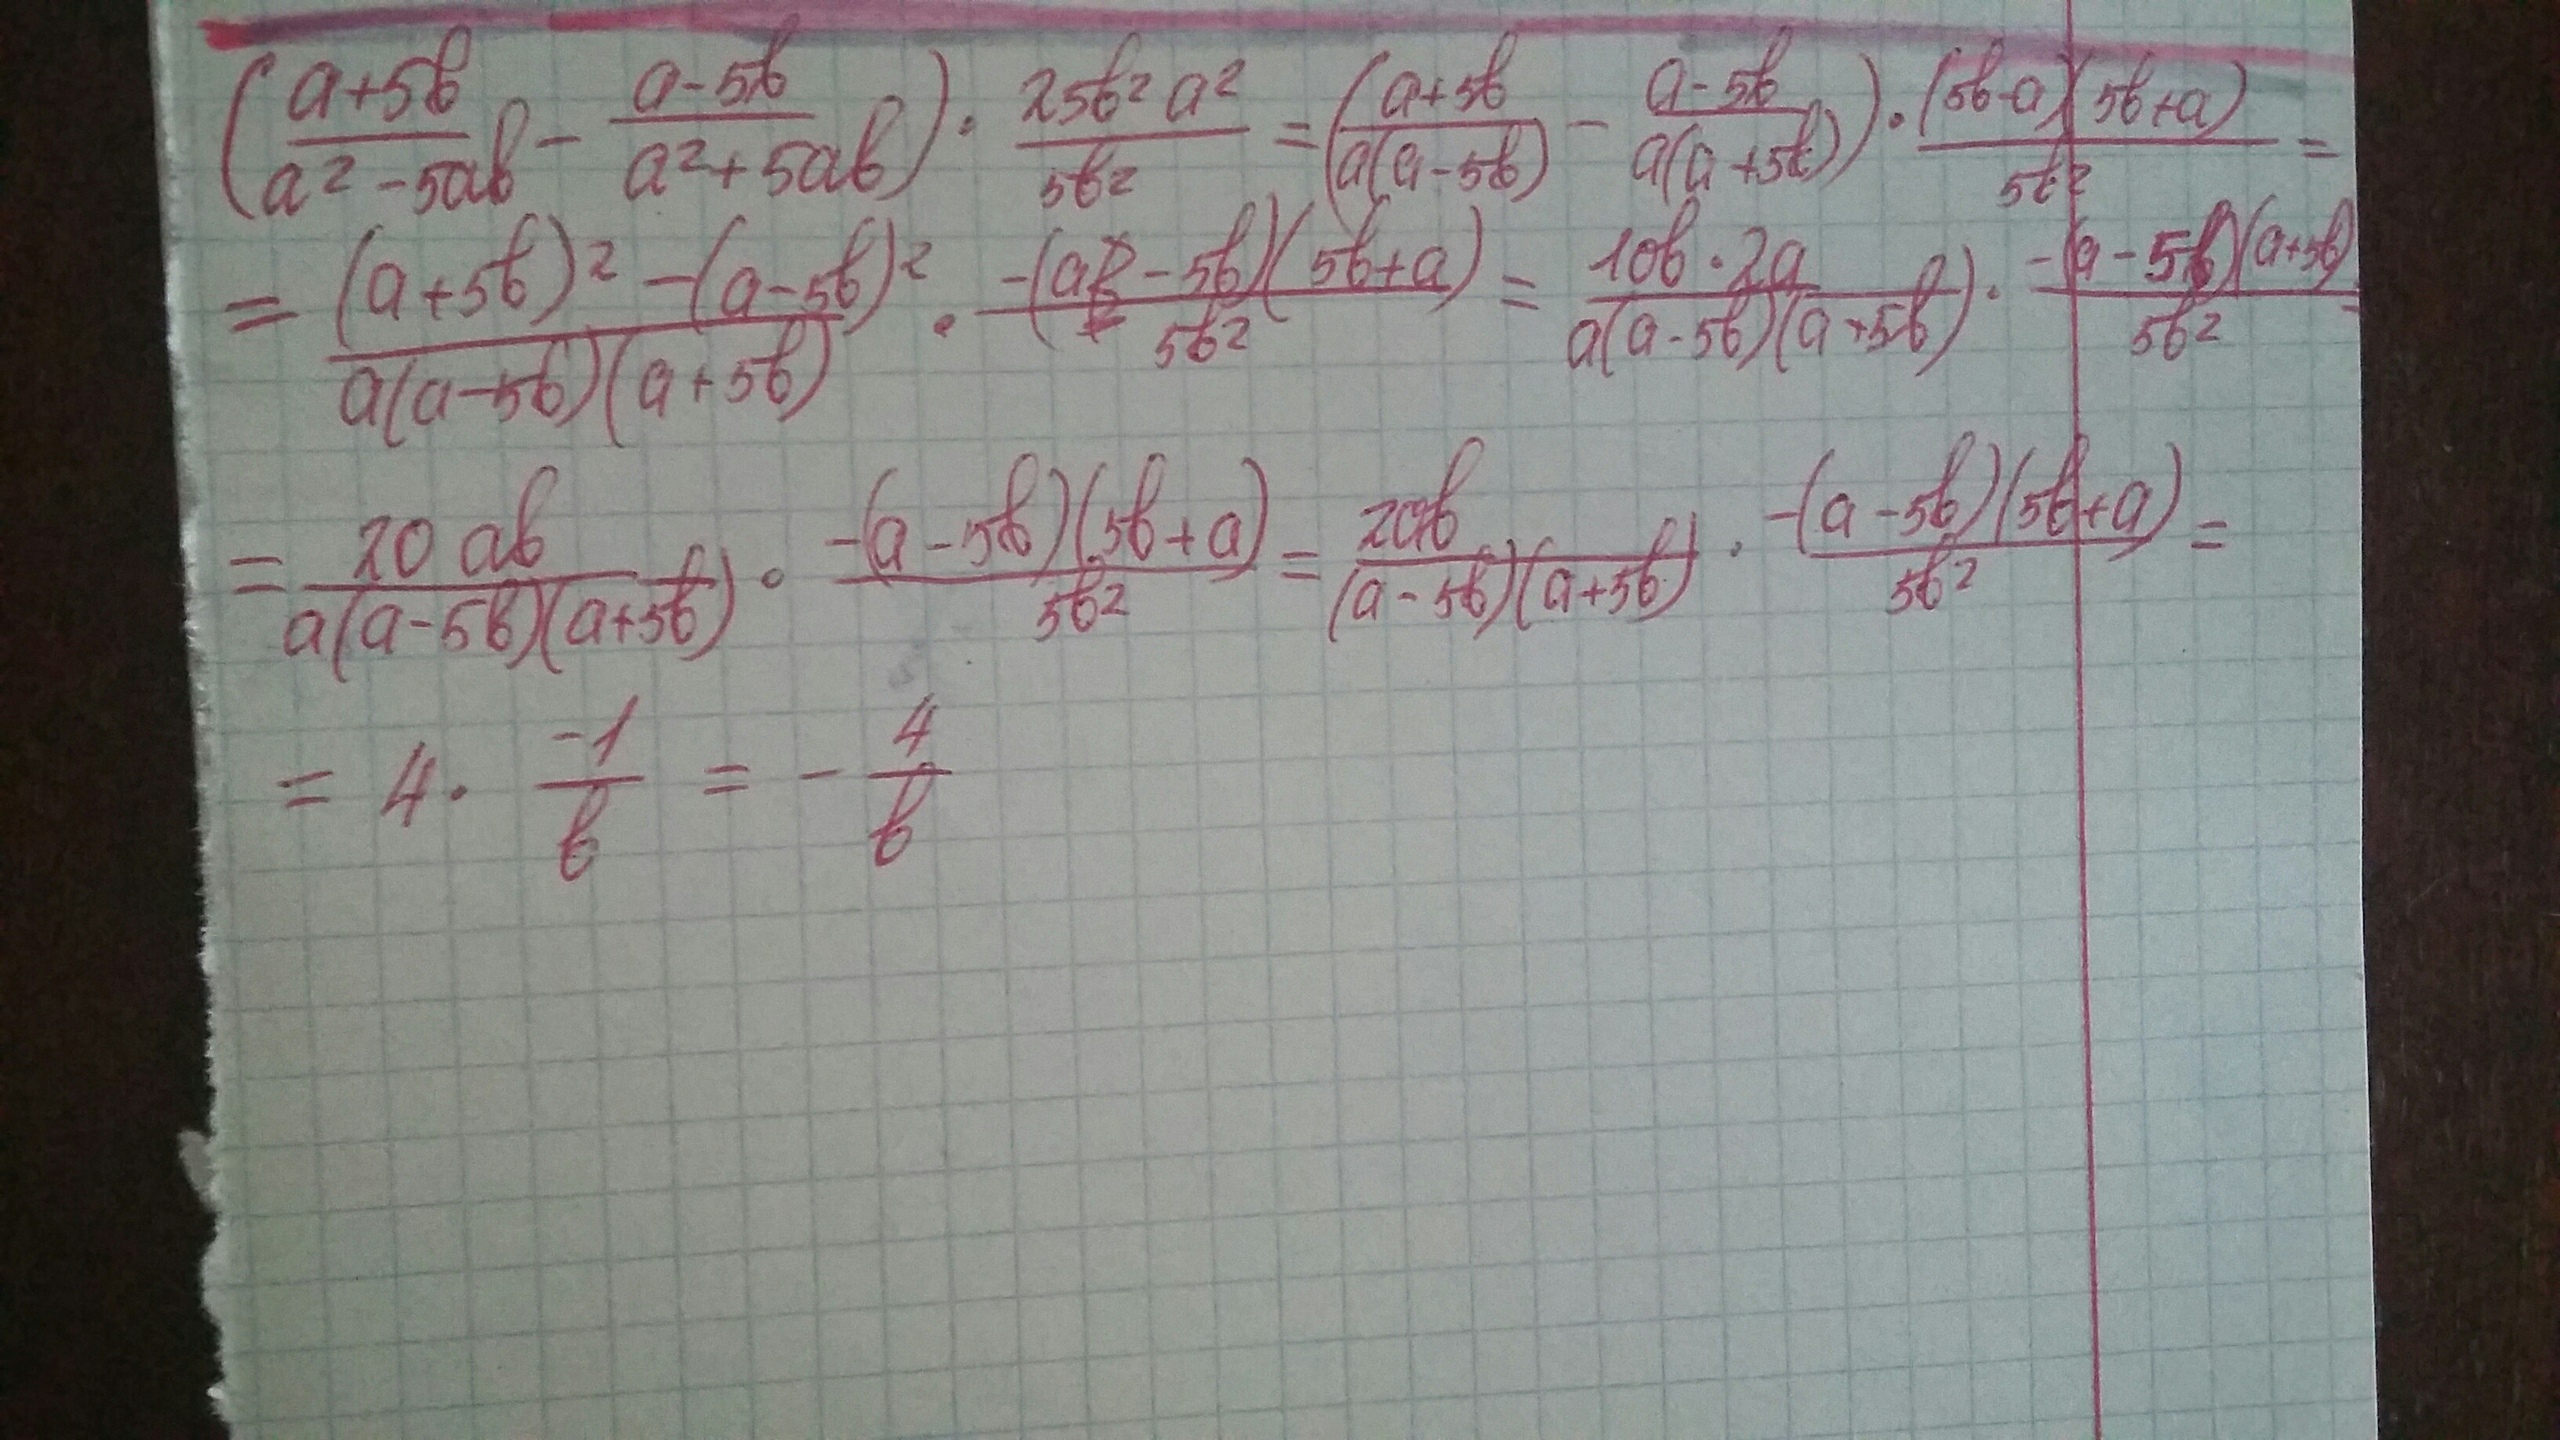 (a+5b/a²-5ab - a-5b/a²+5ab) · 25b² a²/5b² = (a+5b/a(a-5b) - a-5b/a(a+5b)) · (5b-a)(5b+a)/5b² =
= (a+5b)² -(a-5b)²/a(a-5b)(a+5b) · -(a-5b)(5b+a)/5b² = 10b·2a/a(a-5b)(a+5b) · -(a-5b)(a+5b)/5b² =
= 20 ab/a(a-5b)(a+5b) · -(a-5b)(5b+a)/5b² = 20b/(a-5b)(a+5b) · -(a-5b)(5b+a)/5b² =
= 4 · -1/b = - 4/b